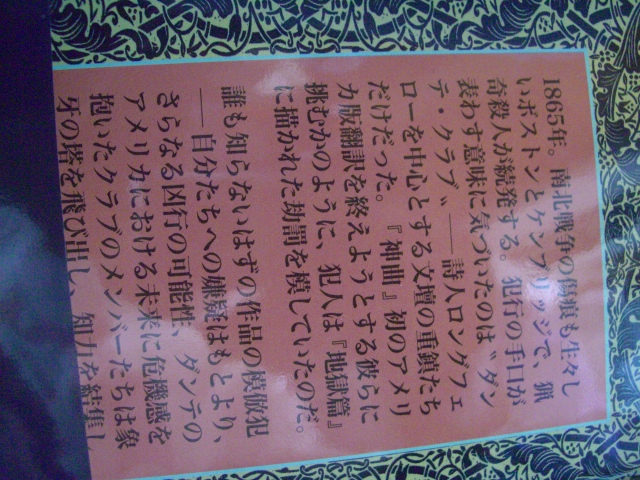 1865年。南北戦争の傷痕も生々し
いボストンとケンブリッジで、猟
奇殺人が続発する。犯行の手口が
表わす意味に気づいたのは〝ダン
テ・クラブ〟――詩人ロングフェ
ローを中心とする文壇の重鎮たち
だけだった。『神曲』初のアメリ
カ版翻訳を終えようとする彼らに
挑むかのように、犯人は『地獄篇』
に描かれた劫罰を模していたのだ。
誰も知らないはずの作品の模倣犯
――自分たちへの嫌疑はもとより、
さらなる凶行の可能性、ダンテの
アメリカにおける未来に危機感を
抱いたクラブのメンバーたちは象
牙の塔を飛び出し、知力を結集し